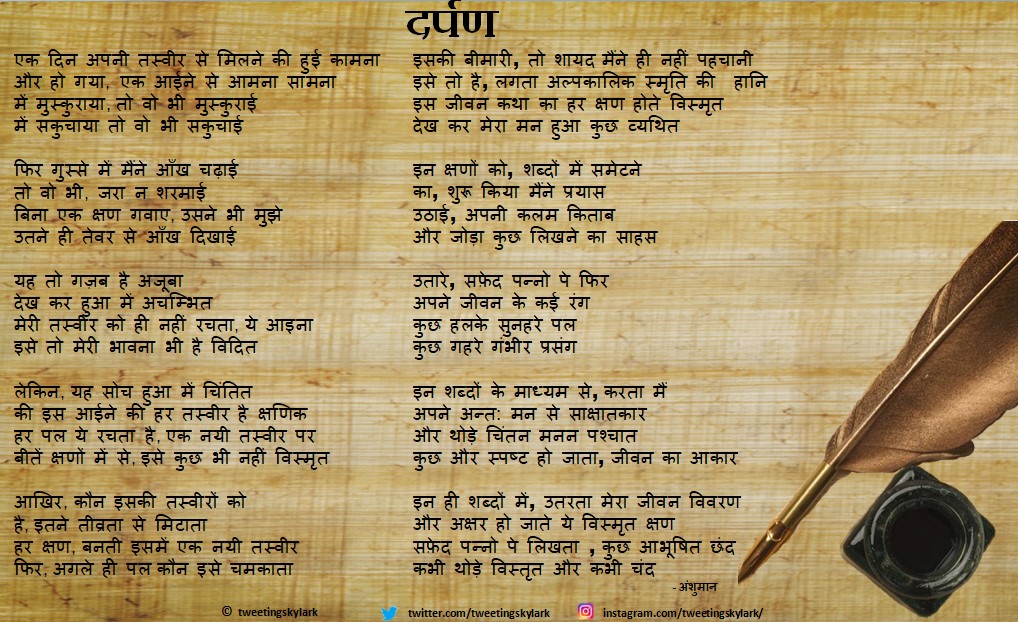 दर्पण
एक दिन अपनी तस्वीर से मिलने की हुई कामना
और हो गया, एक आईने से आमना सामना
में मुस्कुराया, तो वो भी मुस्कुराई
में सकुचाया तो वो भी सकुचाई
फिर गुस्से में मैंने आँख चढ़ाई
तो वो भी, जरा न शरमाई
बिना एक क्षण गवाए, उसने भी मुझे
उतने ही तेवर से आँख दिखाई
यह तो गज़ब है अजूबा
देख कर हुआ में अचम्भित
मेरी तस्वीर को ही नहीं रचता, ये आइना
इसे तो मेरी भावना भी है विदित
लेकिन, यह सोच हुआ में चिंतित
की इस आईने की हर तस्वीर है क्षणिक
हर पल ये रचता है, एक नयी तस्वीर पर
बीतें क्षणों में से, इसे कुछ भी नहीं विस्मृत
आखिर, कौन इसकी तस्वीरों को
है, इतने तीव्रता से मिटाता
हर क्षण, बनती इसमें एक नयी तस्वीर
फिर, अगले ही पल कौन इसे चमकाता
इसकी बीमारी, तो शायद मैंने ही नहीं पहचानी
इसे तो है, लगता अल्पकालिक स्मृति की हानि
इस जीवन कथा का हर क्षण होते विस्मृत
देख कर मेरा मन हुआ कुछ व्यथित
इन क्षणों को, शब्दों में समेटने
का, शुरू किया मैंने प्रयास
उठाई, अपनी कलम किताब
और जोड़ा कुछ लिखने का साहस
उतारे, सफ़ेद पन्नो पे फिर
अपने जीवन के कई रंग
कुछ हलके सुनहरे पल
कुछ गहरे गंभीर प्रसंग
इन शब्दों के माध्यम से, करता मैं
अपने अन्त: मन से साक्षातकार
और थोड़े चिंतन मनन पश्चात
कुछ और स्पष्ट हो जाता, जीवन का आकार
इन ही शब्दों में, उतरता मेरा जीवन विवरण
और अक्षर हो जाते ये विस्मृत क्षण
सफ़ेद पन्नो पे लिखता , कुछ आभूषित छंद
कभी थोड़े विस्तृत और कभी चंद
- अंशुमान
© tweetingskylark
twitter.com/tweetingskylark
instagram.com/tweetingskylark/